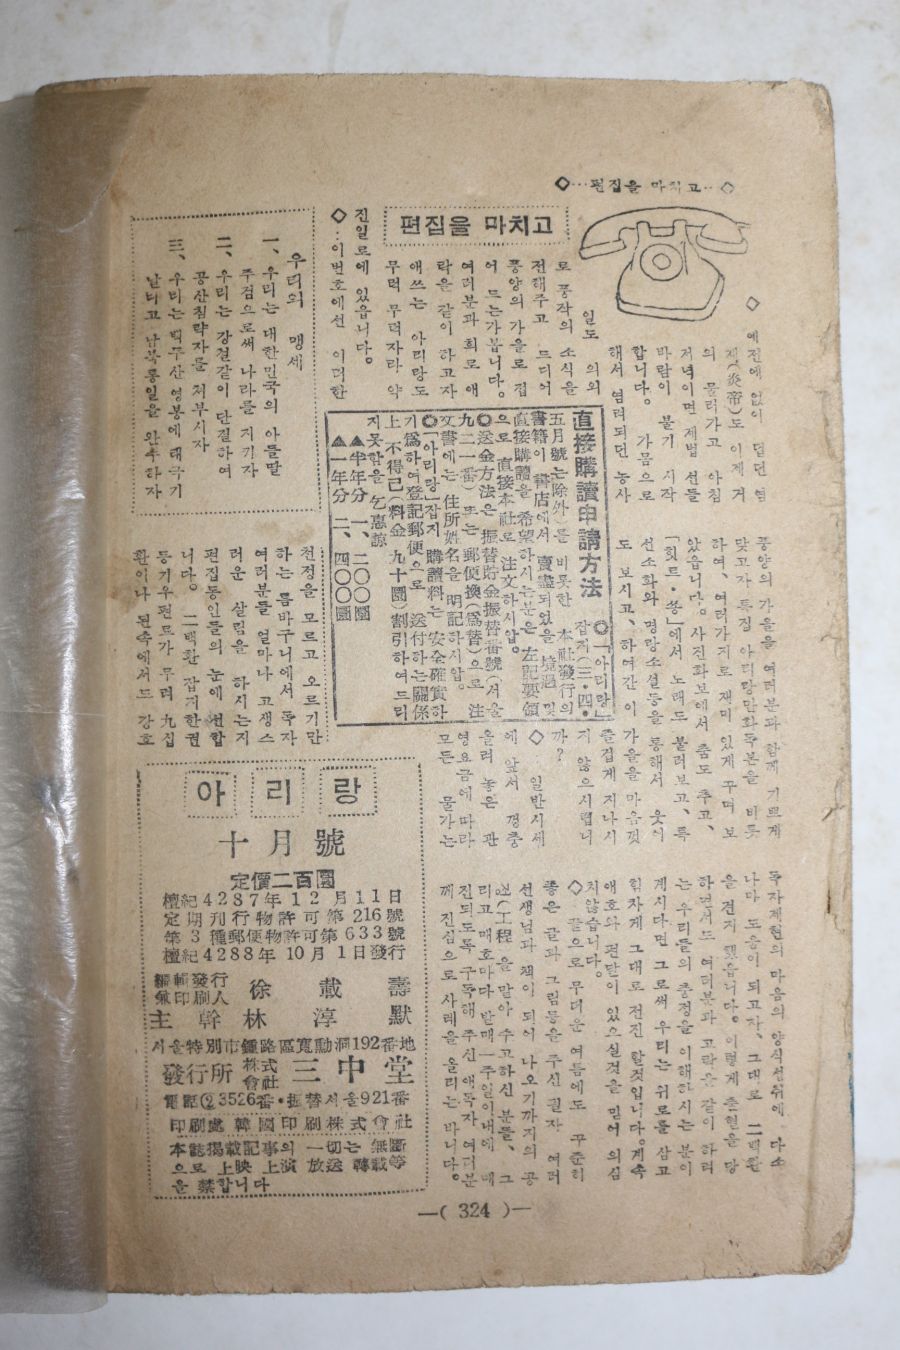 ◇…편집을 마치고…◇
편집을 마치고
◇ 예전에 없이 덥던 염
제(炎帝)도 이제 거
의 물러가고 아침
저녁이면 제법 선들
바람이 불기 시작
합니다。 가믐으로
해서 염려되던 농사
일도 의외
로 풍작의 소식을
전해주고 드디어
풍양의 가을로 접
어 드는가봅니다。
여러분과 희로애
락을 같이 하고자
애쓰는 아리랑도
무럭 무럭자라 약
진일로에 있읍니다。
◇…이번호에선 이러한
풍양의 가을을 여러분과 함께 기쁘게
맞고자 특집 아리랑만화독본을 비롯
하여、여러가지로 재미 있게 꾸며 보
았읍니다。사진화보에서 춤도 추고、
「힛트・쏭」에서 노래도 불러보고、특
선소화와 명랑소설등을 통해서 웃어
도 보시고、하여간 이 가을을 마음껏
즐겁게 지나시
지 않으시렵니
까？
◇ 일반시세
에 앞서 껑충
올려 놓은 관
영요금에 따라
모든 물가는
천정을 모르고 오르기만
하는 틈바구니에서 독자
여러분들 얼마나 고생스
러운 살림을 하시는지
편집동인들의 눈에 선합
니다。 二백환 잡지한권
등기우편료가 무려 九십
환이나 된속에서도 강호
독자제현의 마음의 양식섭취에 다소
나마 도움이 되고자、그대로 二백환
을 견지 했읍니다。이렇게 출혈을 당
하면서도 여러분과 고락을 같이 하려
는 우리들의 충정을 이해하시는 분이
계시다면 그로써 우리는 위로를 삼고
힘차게 그대로 전진 할것입니다。계속
애호와 편달이 있으실것을 믿어 의심
치않습니다。
◇끝으로 무더운 여름에도 꾸준히
좋은 글과 그림등을 주신 필자 여러
선생님과 책이 되어 나오기까지의 공
정(工程)을 맡아 수고하신 분들、그
리고 매호마다 발매 一주일이내에 매
진되도록 구독해 주신 애독자 여러분
께 진심으로 사례을 올리는 바니다。
우리의 맹세
一、우리는 대한민국의 아들딸
주검으로써 나라를 지키자
二、우리는 강철같이 단결하여
공산침략자를 쳐부시자
三、우리는 백두산 영봉에 태극기
날리고 남북통일을 완수하자
直接購讀申請方法
◎「아리랑」
잡지(三・四・
五月號는除外)를 비롯한 本社發行의
書籍이 書店에서 賣盡되었을 境遇 및
直接購讀을 希望하시는분은 左記要領
으로 直接本社로 注文하시압。
◎送金方法은 振替貯金振替番號(서울
九二一番)또는 郵便換(爲替)으로 注
文書에는 住所姓名을 明記하시압。
◎「아리랑」잡지 購讀料는 安全確實하
기爲하여登記郵便으로 送付하는關係
上 不得已(料金 九十圜)割引하여드리
지못함을 乞惠諒
▲半年分 一、二〇〇圜
▲一年分 二、四〇〇圜
아리랑
十月號
定價二百圜
檀紀4287年12月11日
定期刊行物許可第216號
第3種郵便物許可第633號
檀紀4288年10月1日發行
編輯發行
兼印刷人 徐載壽
主幹 林淳默
서울特別市鍾路區寬勳洞192番地
發行所 株式會社 三中堂
電話②3526番・振替서울921番
印刷處 韓國印刷株式會社
本誌揭載記事의 一切는 無斷
으로 上映 上演 放送 轉載等
을 禁합니다
—( 324 )—